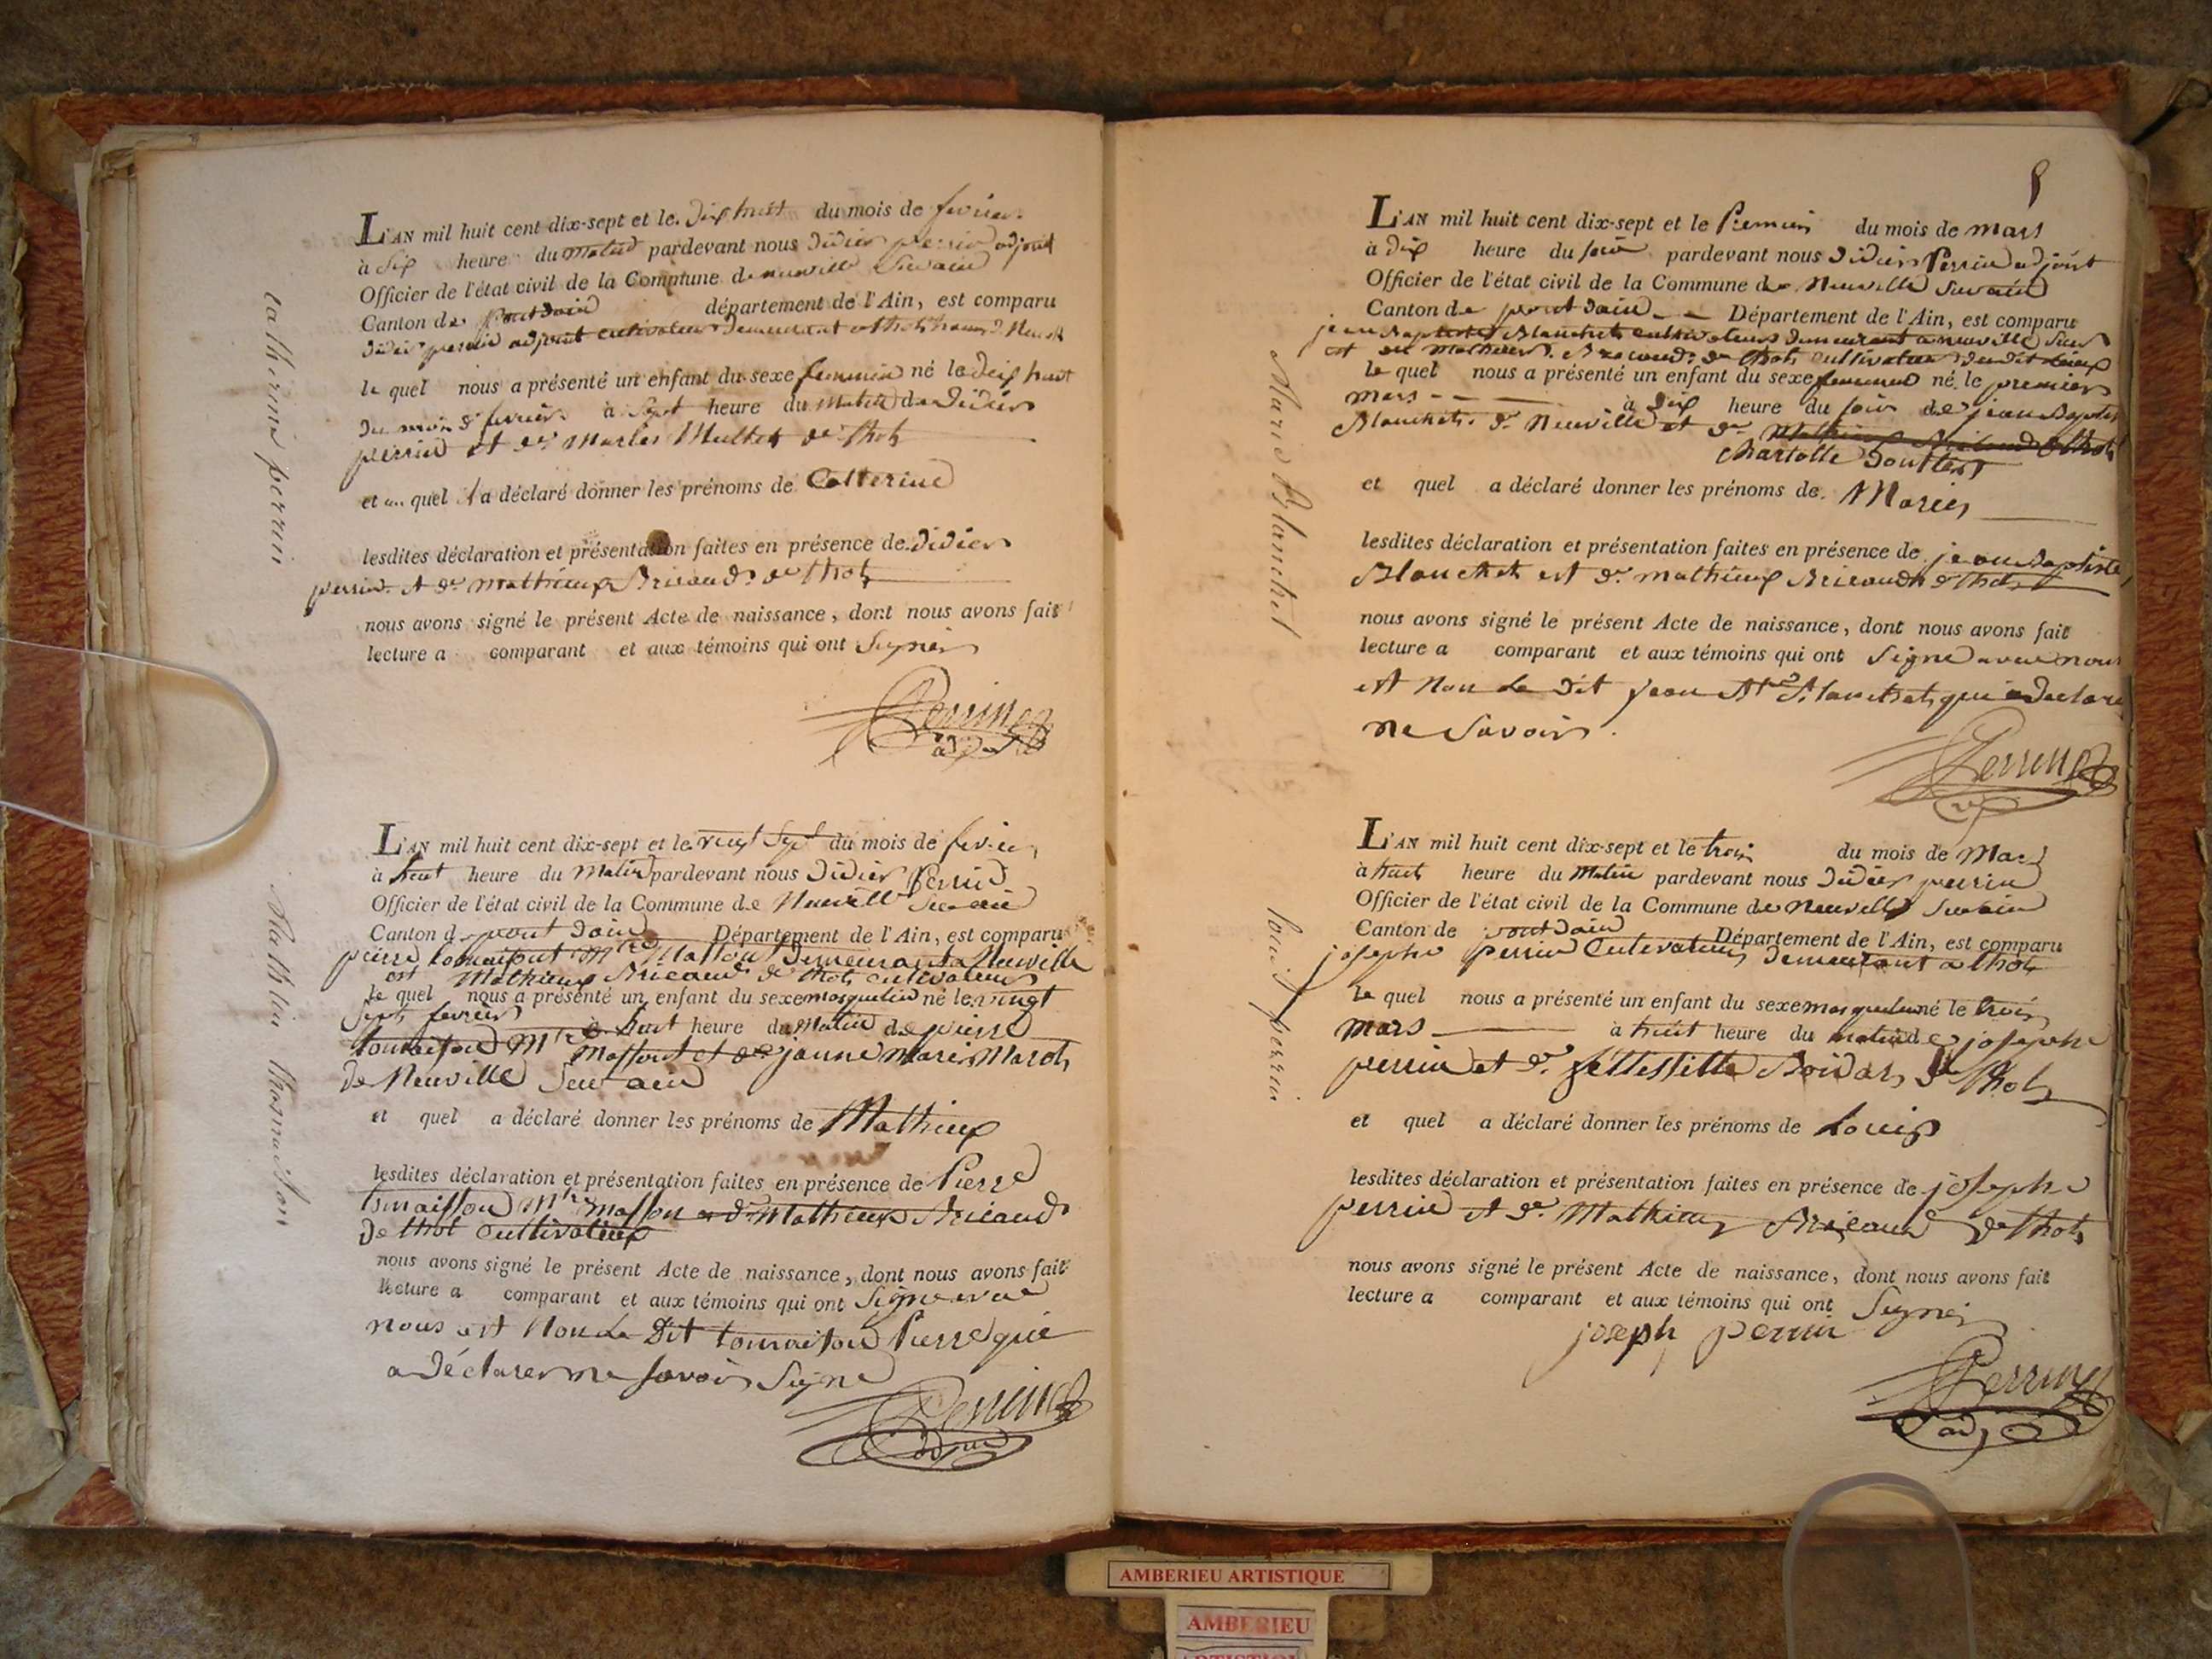 L'AN mil huit cent dix-sept et le dix huit du mois de fevrier
à six heure du matin pardevant nous didier perrin adjoint
Officier de l'état civil de la Commune de neuville sur ain
Canton de pont dain département de l'Ain, est comparu
didier perrin adjoint cultivateur demeurant a thol
le quel nous a présenté un enfant du sexe feminin né le dix huit
du mois de fevrier à sept heure du matin de didier
perrin et de Mullet de thol
et au quel il a déclaré donner les prénoms de Catterine
lesdites déclaration et présentation faites en présence de didier
perrin et de mathieux Bricaud de thol
nous avons signé le présent Acte de naissance, dont nous avons fait
lecture a comparant et aux témoins qui ont Signer
Perrin
adj
catherine perrin
L'AN mil huit cent dix-sept et le vingt sept du mois de fevrier
à huit heure du Matin pardevant nous didier Perrin
Officier de l'état civil de la Commune de Neuville sur ain
Canton de pont dain Département de l'Ain, est comparu
pierre M^tre Masson demeurant a Neuville
et Mathieux Bricaud de thol cultivateur
le quel nous a présenté un enfant du sexe masquelin né le vingt
Sept fevrier à huit heure du Matin de pierre
M^tre Masson et de janne Marie
de Neuville Sur ain
et quel a déclaré donner les prénoms de Mathieux
lesdites déclaration et présentation faites en présence de Pierre
M^tre masson et de Mathieux Bricaud
de thol cultivateur
nous avons signé le présent Acte de naissance, dont nous avons fait
lecture a comparant et aux témoins qui ont Signe avec
nous et Non le Dit Pierre qui
a déclarer ne savoir Signe
Perrin
adj
L'AN mil huit cent dix-sept et le Premier du mois de mars
à dix heure du soir pardevant nous Didier Perrin adjoint
Officier de l'état civil de la Commune de Neuville Sur ain
Canton de pont dain Département de l'Ain, est comparu
jean Baptiste Blanchet cultivateur demeurant a neuville sur
et de Mathieux Bricaud de thol cultivateur dudit lieux
le quel nous a présenté un enfant du sexe feminin né le premier
mars à dix heure du soir de jean Baptiste
Blanchet de Neuville et de Mathieux Bricaud de thol
Charlotte
et quel a déclaré donner les prénoms de Marie
lesdites déclaration et présentation faites en présence de jean Baptiste
Blanchet et de mathieux Bricaud de thol
nous avons signé le présent Acte de naissance, dont nous avons fait
lecture a comparant et aux témoins qui ont Signe avec nous
et Non le Dit jean Blanchet qui a declare
ne Savoir
Perrin
Marie Blanchet
L'AN mil huit cent dix-sept et le trois du mois de Mars
à huit heure du Matin pardevant nous Didier perrin
Officier de l'état civil de la Commune de Neuville Sur ain
Canton de pont dain Département de l'Ain, est comparu
josephe perrin Cultivateur demeurant a thol
le quel nous a présenté un enfant du sexe masquelin né le trois
mars à huit heure du matin de josephe
perrin et de de thol
et quel a déclaré donner les prénoms de Louis
lesdites déclaration et présentation faites en présence de josephe
perrin et de Mathieux Bricaud de thol
nous avons signé le présent Acte de naissance, dont nous avons fait
lecture a comparant et aux témoins qui ont Signer
joseph perrin
Perrin
adj
louis perrin
AMBERIEU ARTISTIQUE
AMBERIEU
ARTISTIQUE